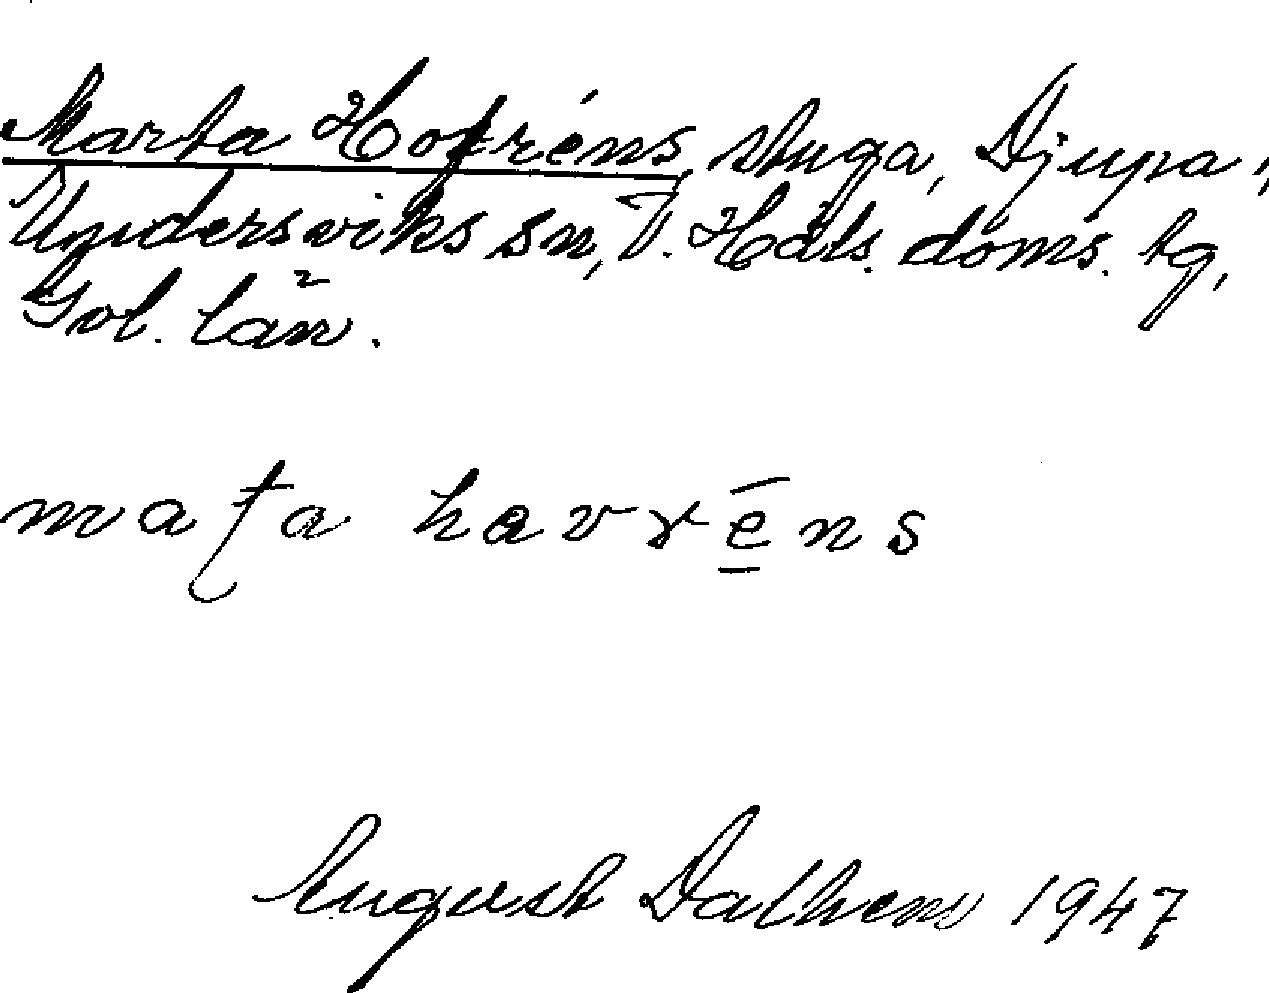 Marta Hofréns stuga, Djupa,
Undersviks sn, V. Häls. doms. tg,
Gvl. län.
maʈa havrēns
August Dalhem 1947